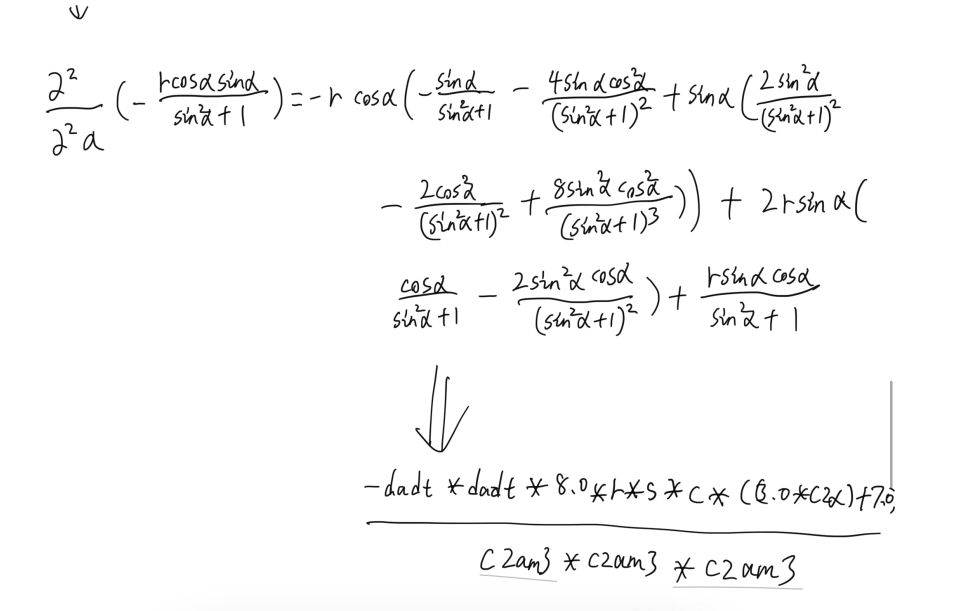 ∂²/∂²a (- rcosα sinα / sin²α+1) = -r cosα (- sinα / sin²α+1 - 4sinα cos²α / (sin²α+1)² + sinα ( 2sin²α / (sin²α+1)²
- 2cos²α / (sin²α+1)² + 8sin²α cos²α / (sin²α+1)³ )) + 2rsinα (
cosα / sin²α+1 - 2sin²α cosα / (sin²α+1)² ) + rsinα cosα / sin²α+1
-dadt * dadt * 8.0 * r * s * c * (3.0*C2α)+7.0,
C2am3 * c2am3 * c2am3